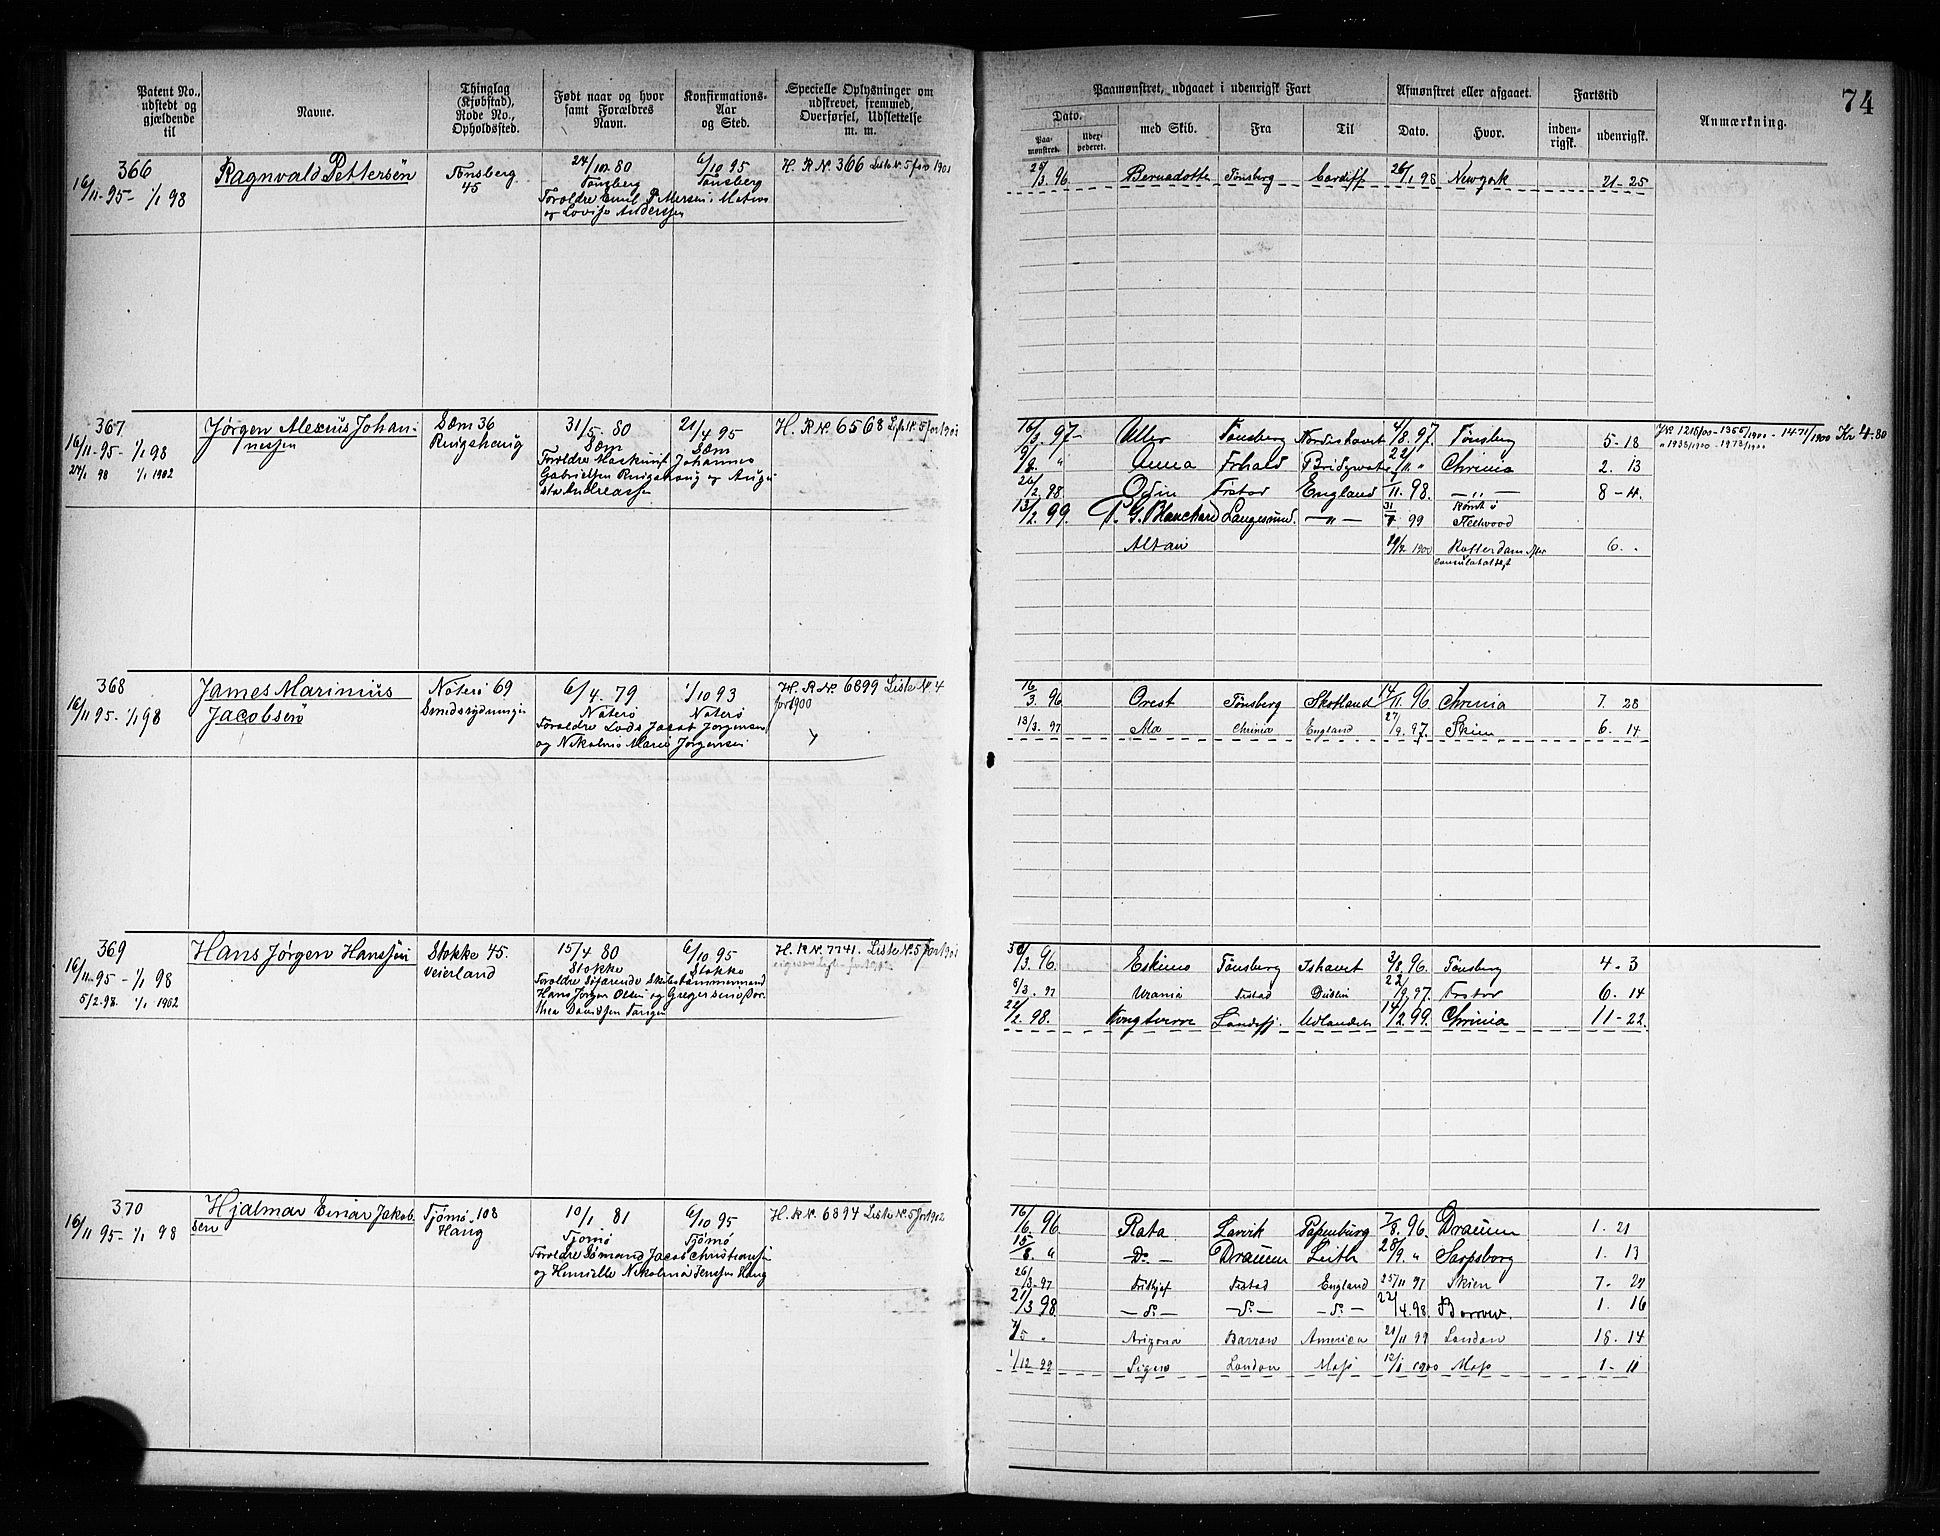 74
Patent No., udstedt og gjældende til
Navne.
Thinglag (Kjøbstad), Rode No., Opholdssted.
Født naar og hvor samt Forældres Navn.
Konfirmations-Aar og Sted.
Specielle Oplysninger om udskrevet, fremmed, Overførsel, Udslettelse m. m.
Paamønstret, udgaaet i udenrigsk Fart
Afmønstret eller afgaaet.
Fartstid
Anmærkning.
Dato.
Paamønstret.
med Skib.
Fra
Til
Dato.
Hvor.
indenrigsk.
udenrigsk.
366
16/11-95- 1/1 98
Ragnvald Pettersen
Tønsberg 45
24/10 80 Tønsberg
6/10 95 Tønsberg
Forældre Emil Pettersen
og Lovise Anderssen
H. R No. 366 Liste No. 5 for 1901
25/3 96 Bernadotte Tønsberg Cardiff 26/1 98 Newyork 21-25
367
16/11-95- 1/1 98
24/1 98 1/1 1902
Jørgen Alexius Johannessen
Sæm 36
Ringshaug
31/5-80 Sæm
21/4 95 Sæm
Forældre Maskinist Johannes
Gabrielsen Ringshaug og Augusta Andreassen
H. R No. 6568 List. N. 5 for 1901
16/3. 97- Uller Tønsberg Nordishavet 4/8. 97. Tønsberg 5-18
Anna Frhald Bridgwater Chrinia 2. 13
26/2 98 Odin Frstad England 1/11. 98. — „ — 8-4.
13/2. 99. P. G. Blanchard Langesund. — „ — 31/7 99 Fleetwood
Altair 29/2 1900 Rotterdam 6.
JNo 1215/00-1355/1900-1471/1900 Kr 4.80
" 1938/1900 1973/1900
368
16/11 95- 1/1 98
James Marinius Jacobsen
Nøterø 69
Smidsrydningen
6/4. 79 Nøterø
1/10 93 Nøterø
Forældre Lods Jacob Jørgensen
og Nikoline Marie Jørgensen
H. R No. 6899 Liste N. 4 for 1900
16/3. 96 Orest Tønsberg Skotland 14/11. 96 Chrinia 7. 28
13/3. 97 Ma Chrinia England 27/9. 97. Skien 6. 14
369
16/11-95- 1/1 98
5/2. 98. 1/1 1902
Hans Jørgen Hanssen
Stokke 45.
Veierland
15/4 80 Stokke
6/10 95 Stokke
Forældre Søfarende Skibstømmermand
Hans Jørgen Olsen og Gregersine Dorthea Davidsen
H. R No. 7741. Liste No. 5 for 1901
30/3. 96. Eskimo Tønsberg Ishavet 3/8. 96. Tønsberg 4-3
8/3. 97 Urania Frstad Dublin 22/9. 97. Frstad 6. 14
21/2. 98. Kong Sverre Sandefj. Udlandet 14/2. 99. Chrinia 11-22
370
16/11 95- 1/1 98
Hjalmar Einar Jakobsen
Tjømø 108
Haug
10/1. 81 Tjømø
6/10 95 Tjømø
Forældre Sømand Jacob Christiansen
og Henriette Nikoline Jenssen Haug
H. R No. 6894 Liste No. 5 for 1902
16/6. 96 Rata Larvik Papenburg 7/8. 96. Dramn 1. 21
15/8. „ Do. — Dramn Leith 28/9. „ Sarpsborg 1. 13
26/3. 97 Fridtjof Frstad England 25/11 97 Skien 7. 29
21/3 98 — do. — — do. — — do. — 22/4. 98. Barrow. 1. 16
7/5 „ Arizona Barrow America 21/11 99 London 18. 14
1/12 99 Sigurd London Moss 12/1 1900 Moss 1-11